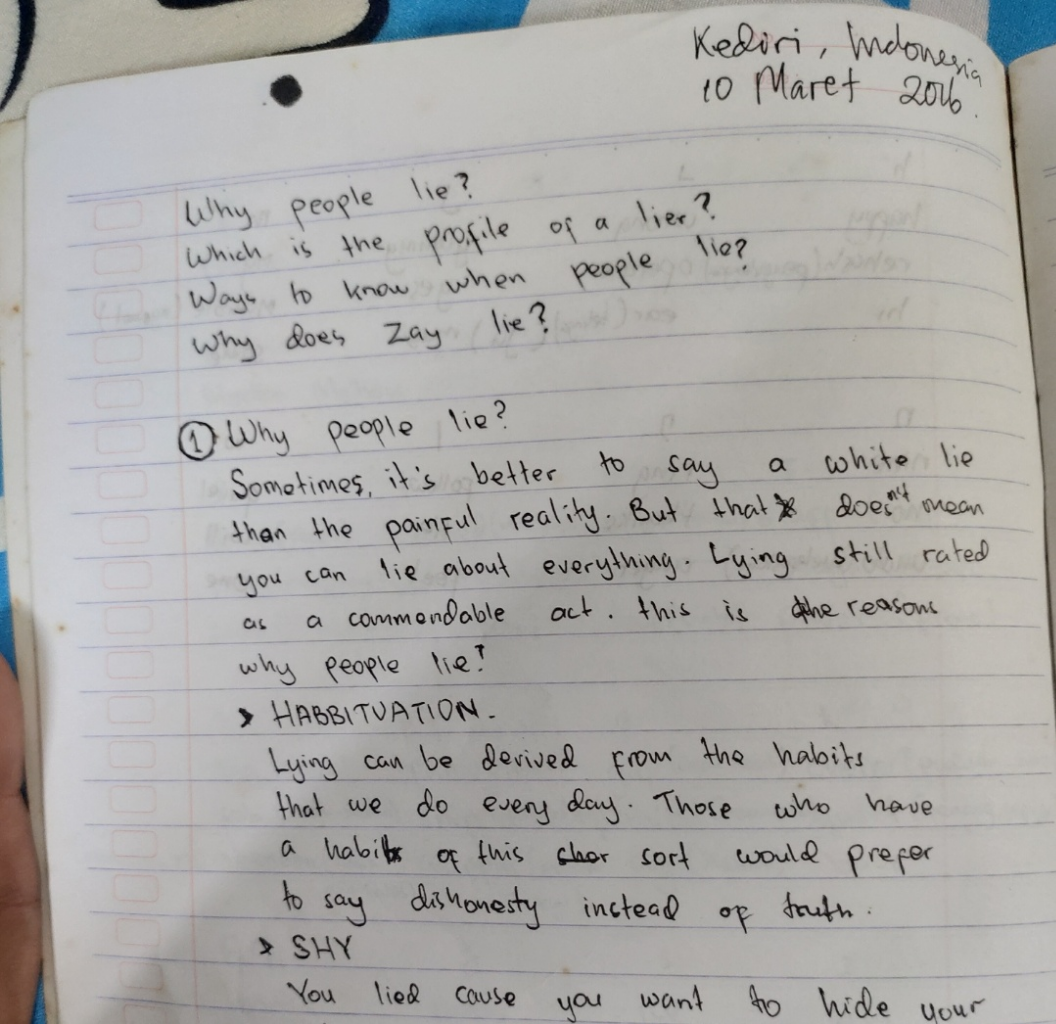 Kediri, Indonesia
10 Maret 2016.
Why people lie?
Which is the profile of a lier?
Ways to know when people lie?
Why does Zay lie?
① Why people lie?
Sometimes, it's better to say a white lie
than the painful reality. But that doesn't mean
you can lie about everything. Lying still rated
as a commendable act. this is the reasons
why people lie?
> HABBITUATION.
Lying can be derived from the habits
that we do every day. Those who have
a habit of this sort would prefer
to say dishonesty instead of truth.
> SHY
You lied cause you want to hide your